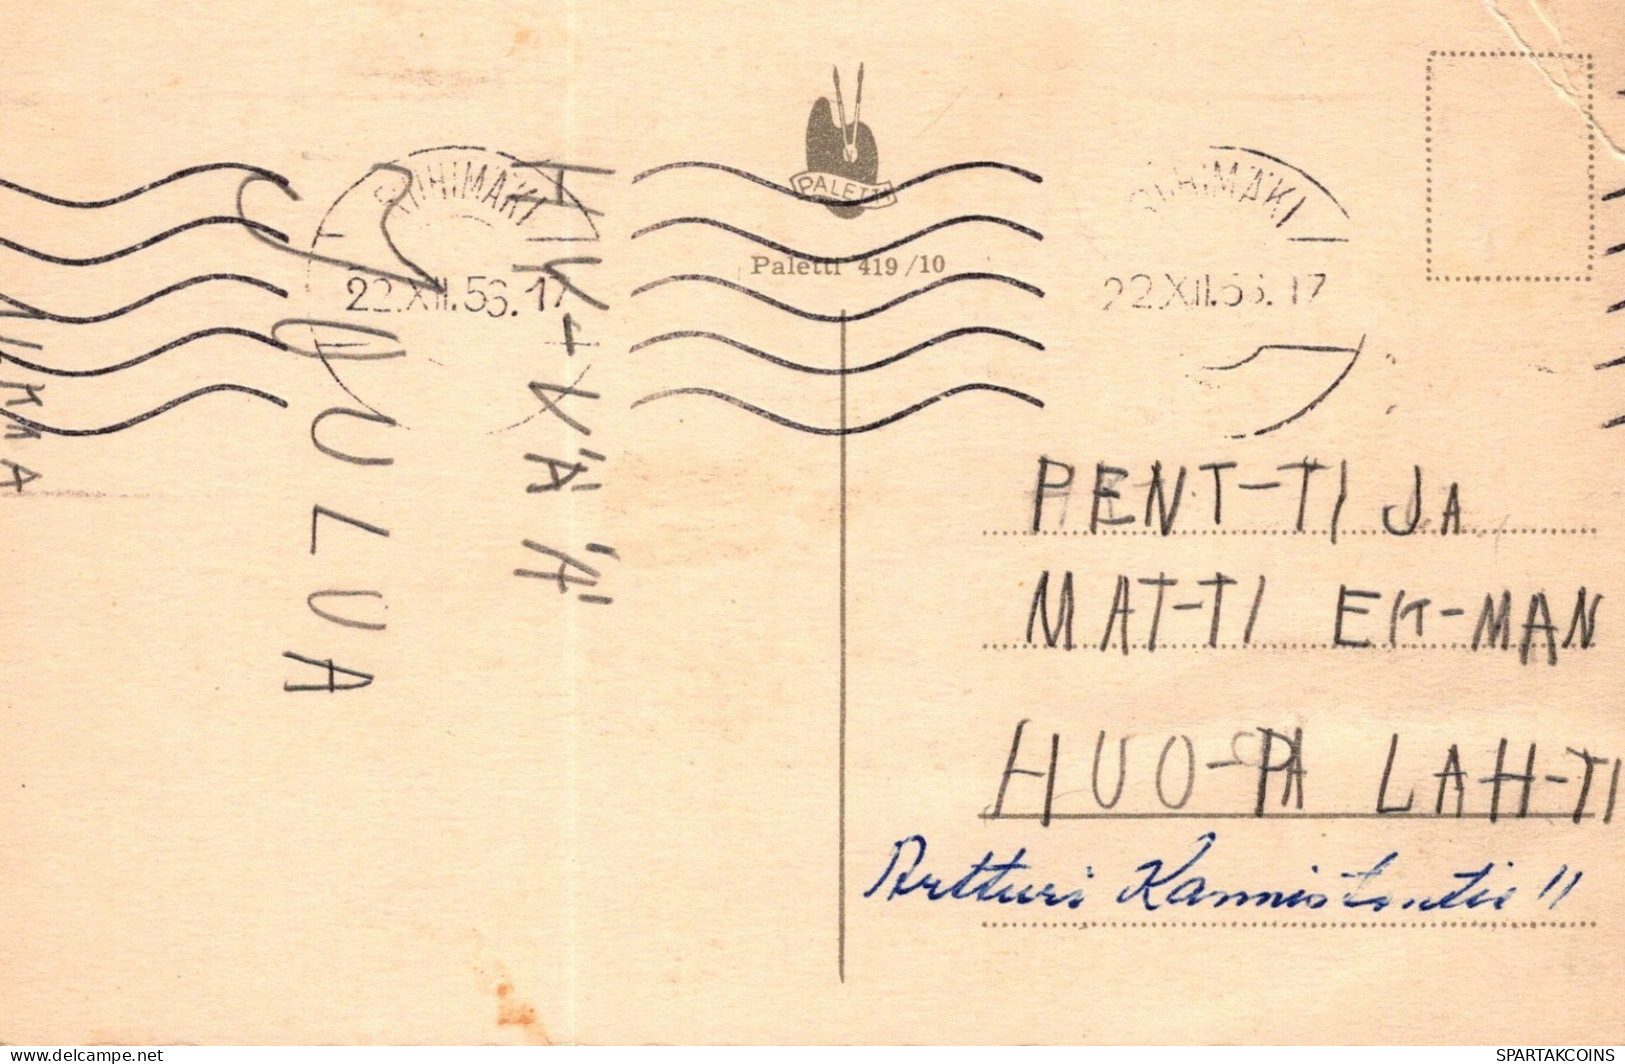 HY-VÄÄ
JOULUA
RIIHIMÄKI
22.XII.56.17
PALETTI
Paletti 419/10
RIIHIMÄKI
22.XII.56.17
PENT-TI JA
MAT-TI EK-MAN
HUO-PA LAH-TI
Artturi Kannistontie 11
delcampe.net
SPARTAKCOINS